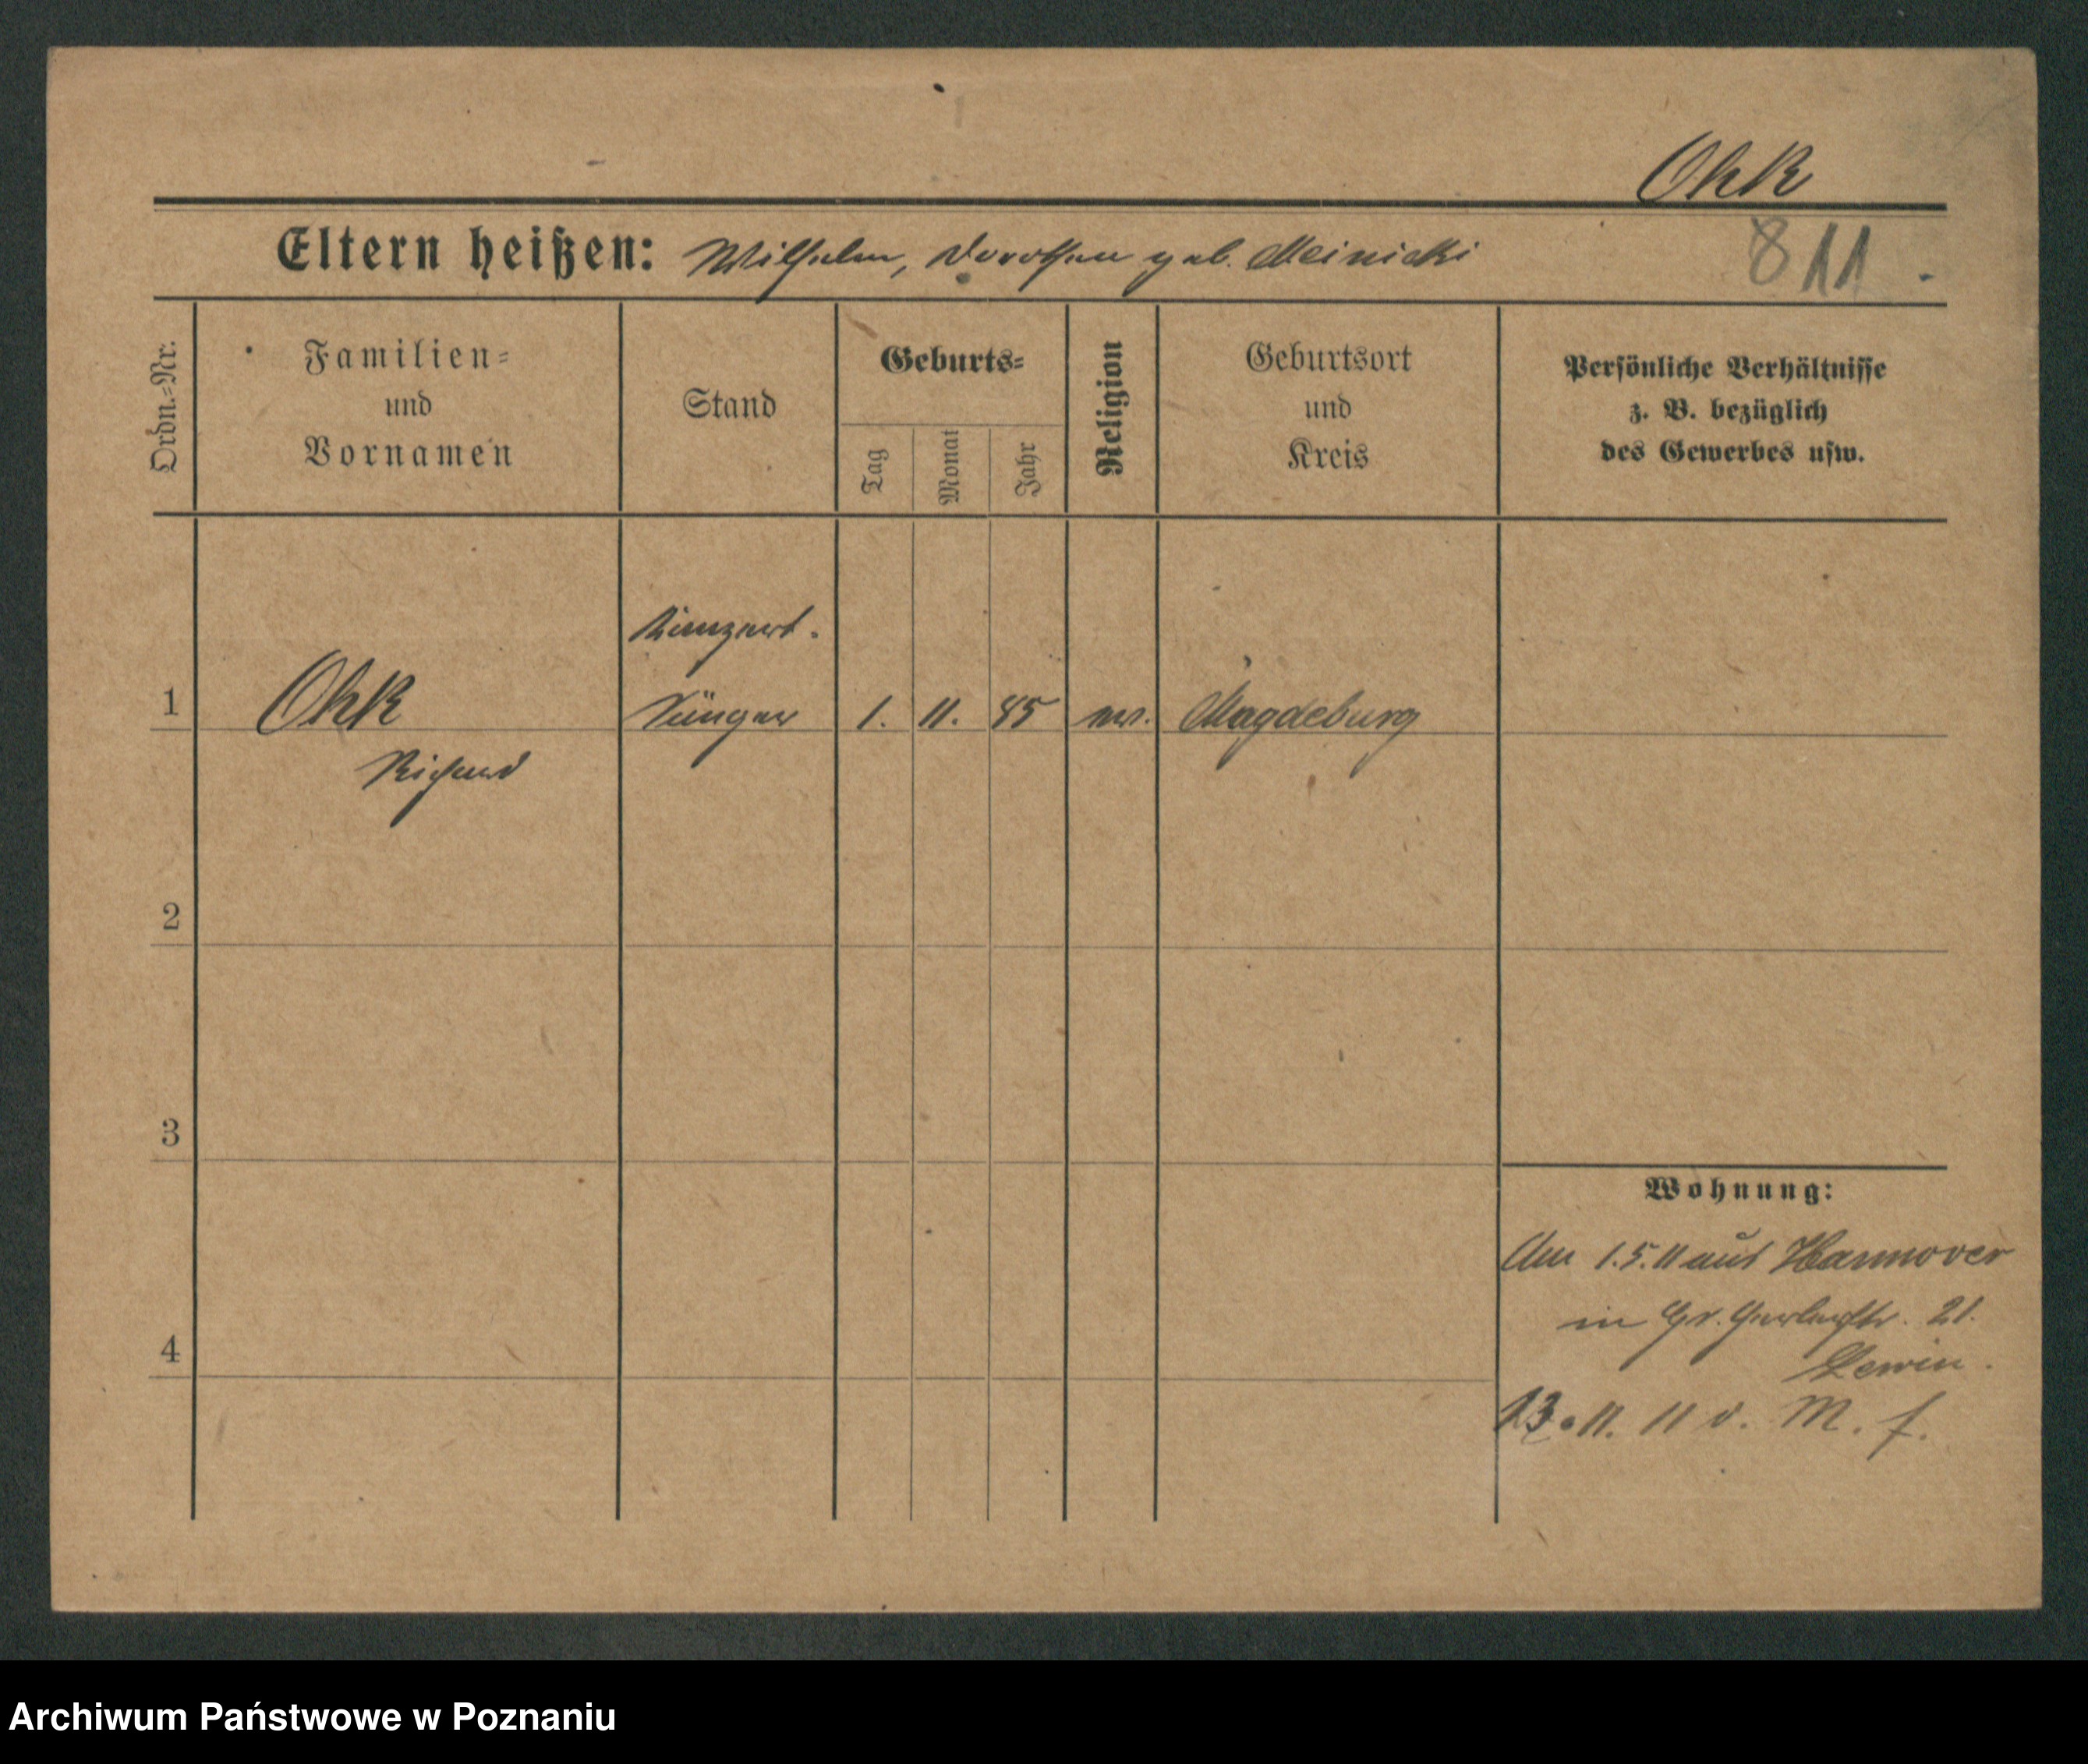 Ohk
Eltern heißen: Wilhelm, Dorothea geb. Meinicki
811.
Ordn.=Nr.
Familien=
und
Vornamen
Stand
Geburts=
Tag
Monat
Jahr
Religion
Geburtsort
und
Kreis
Persönliche Verhältnisse
z. B. bezüglich
des Gewerbes usw.
1
Ohk
Richard
Konzert.
Sänger
1.
11.
85
ev.
Magdeburg
2
3
4
Wohnung:
Am 1.5.11 aus Hannover
in Gr. Gerberstr. 21.
Lewin.
13.11.11 v. M. f.
Archiwum Państwowe w Poznaniu